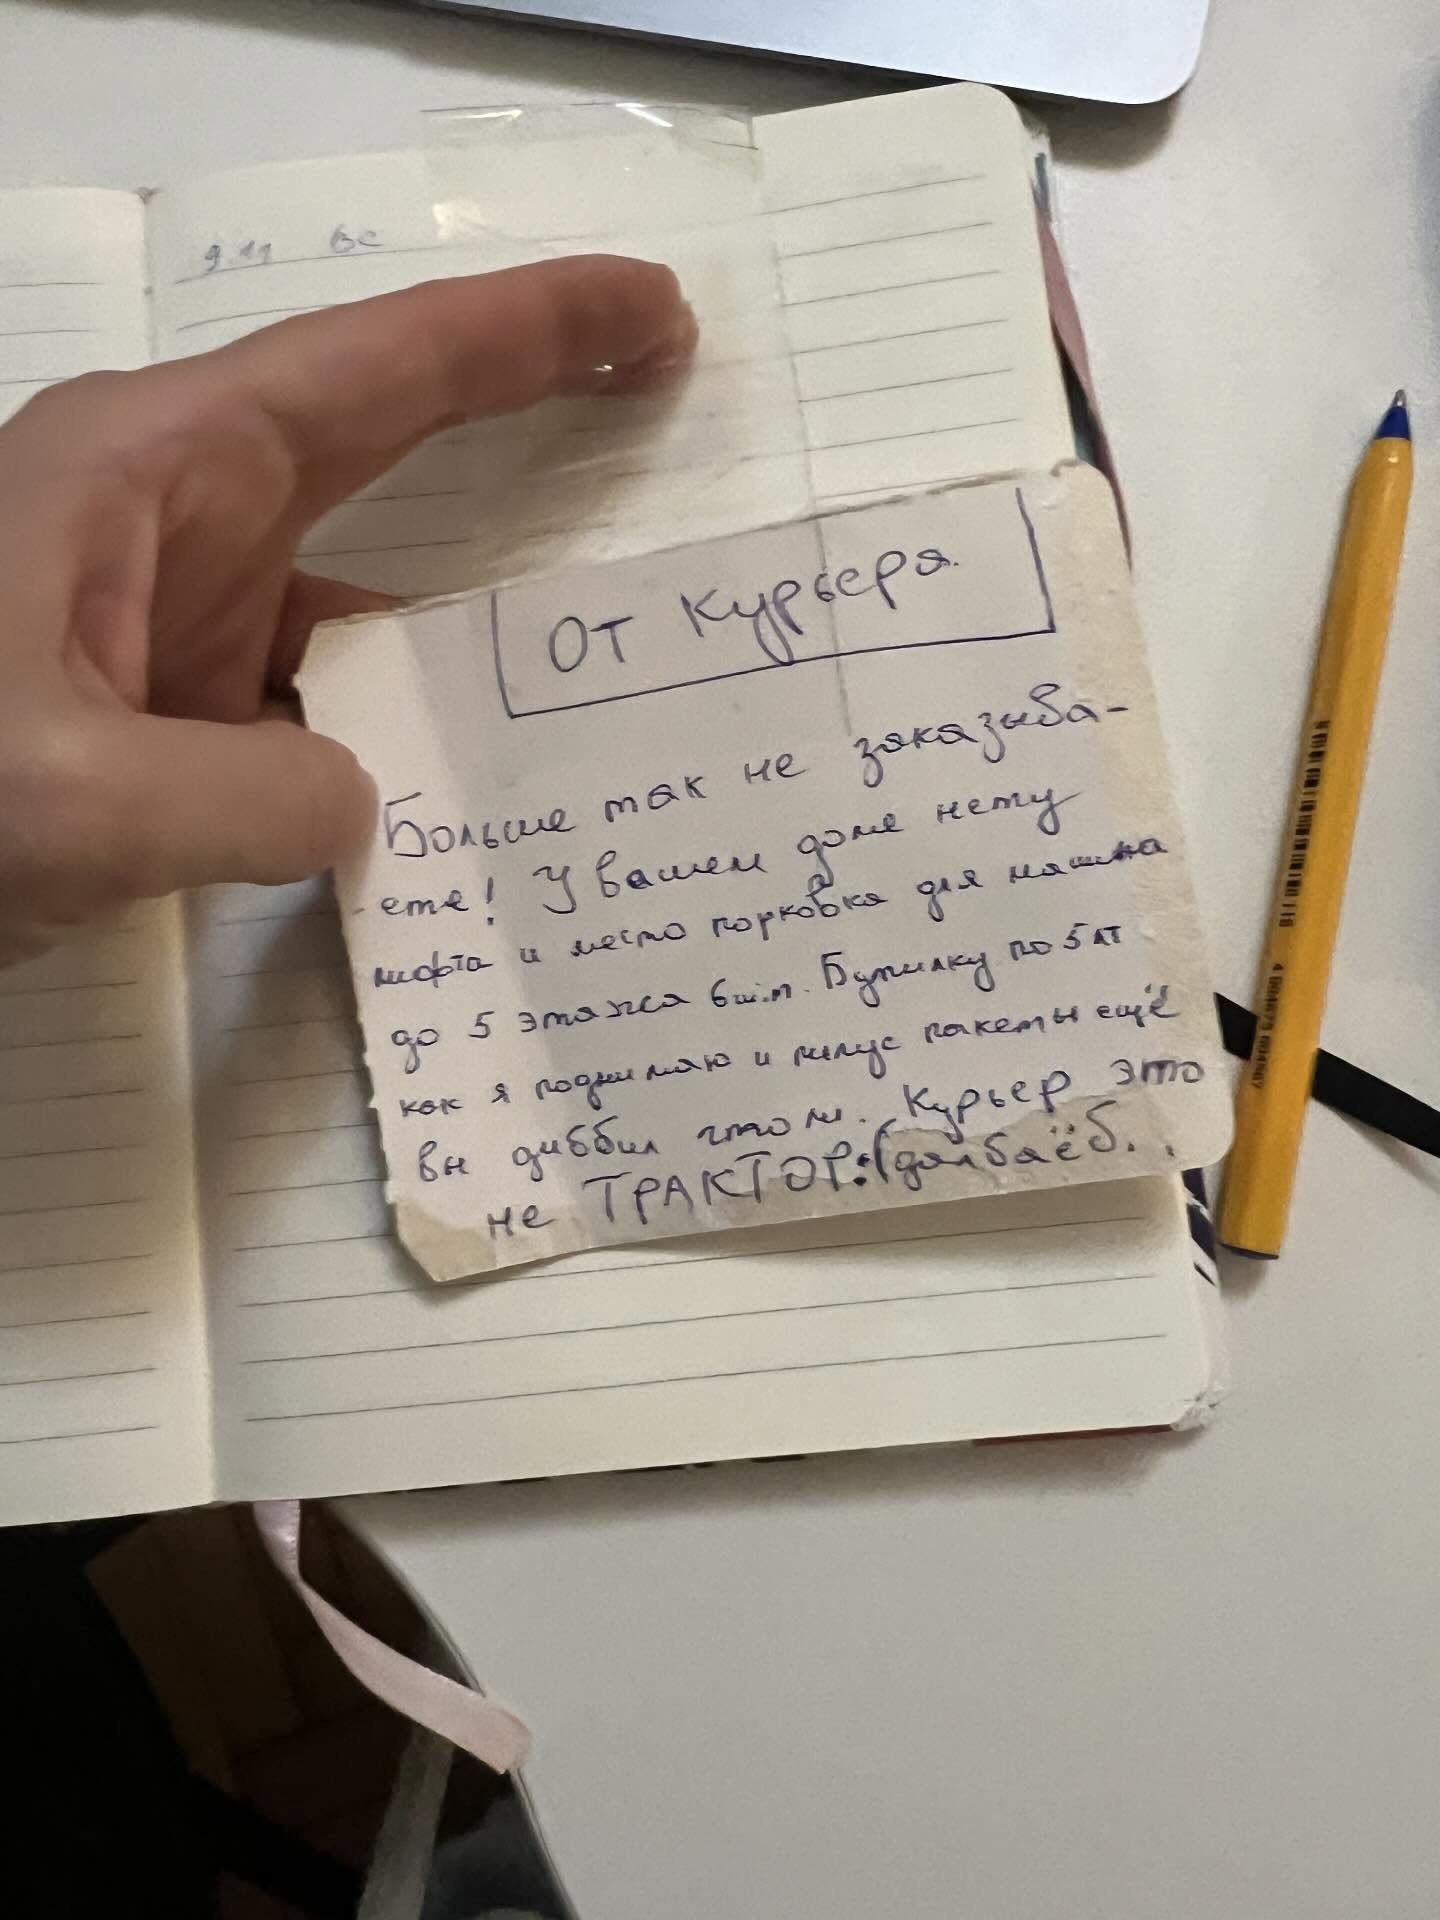 9.11 Вс
От Курьера.
Больше так не заказыва-
ете! У вашем доме нету
лифта и место порковка для машина
до 5 этажа 6 шт. Бутилку по 5 лт
как я поднимаю и плюс пакеты ещё
вы диббил что ли. Курьер это
не ТРАКТОР:( далбаёб..